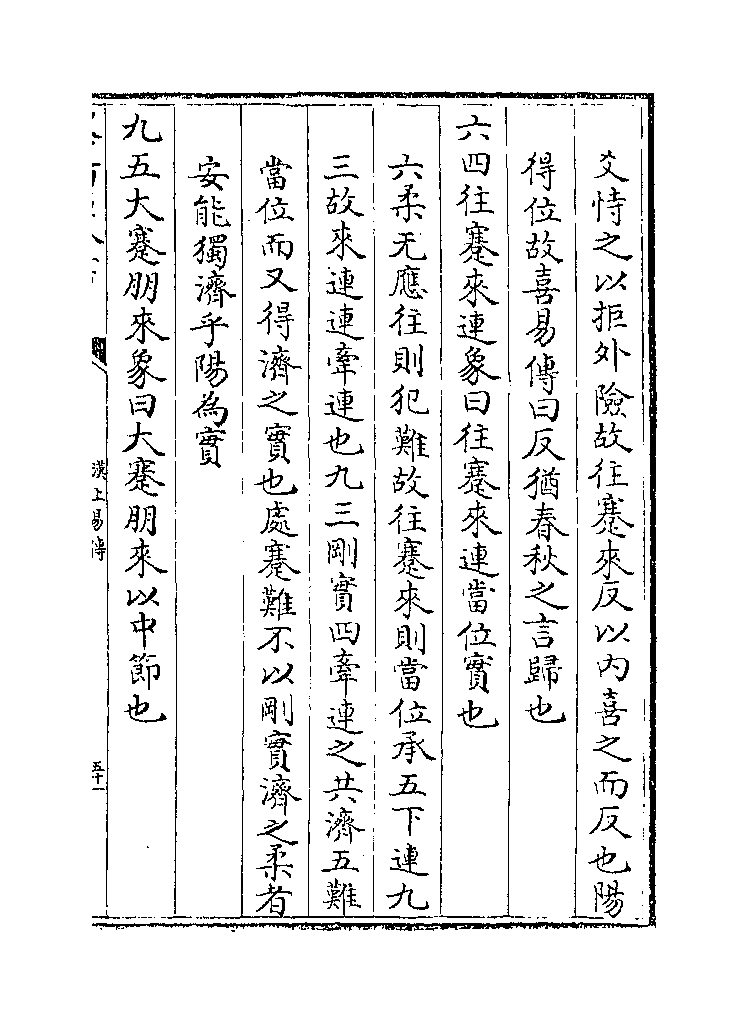 爻恃之以拒外險故往蹇來反以内喜之而反也陽
得位故喜易傳曰反猶春秋之言歸也
六四往蹇來連象曰往蹇來連當位實也
六柔无應往則犯難故往蹇來則當位承五下連九
三故來連連牽連也九三剛實四牽連之共濟五難
當位而又得濟之實也處蹇難不以剛實濟之柔者
安能獨濟乎陽為實
九五大蹇朋來象曰大蹇朋來以中節也
漢上易傳
五十一